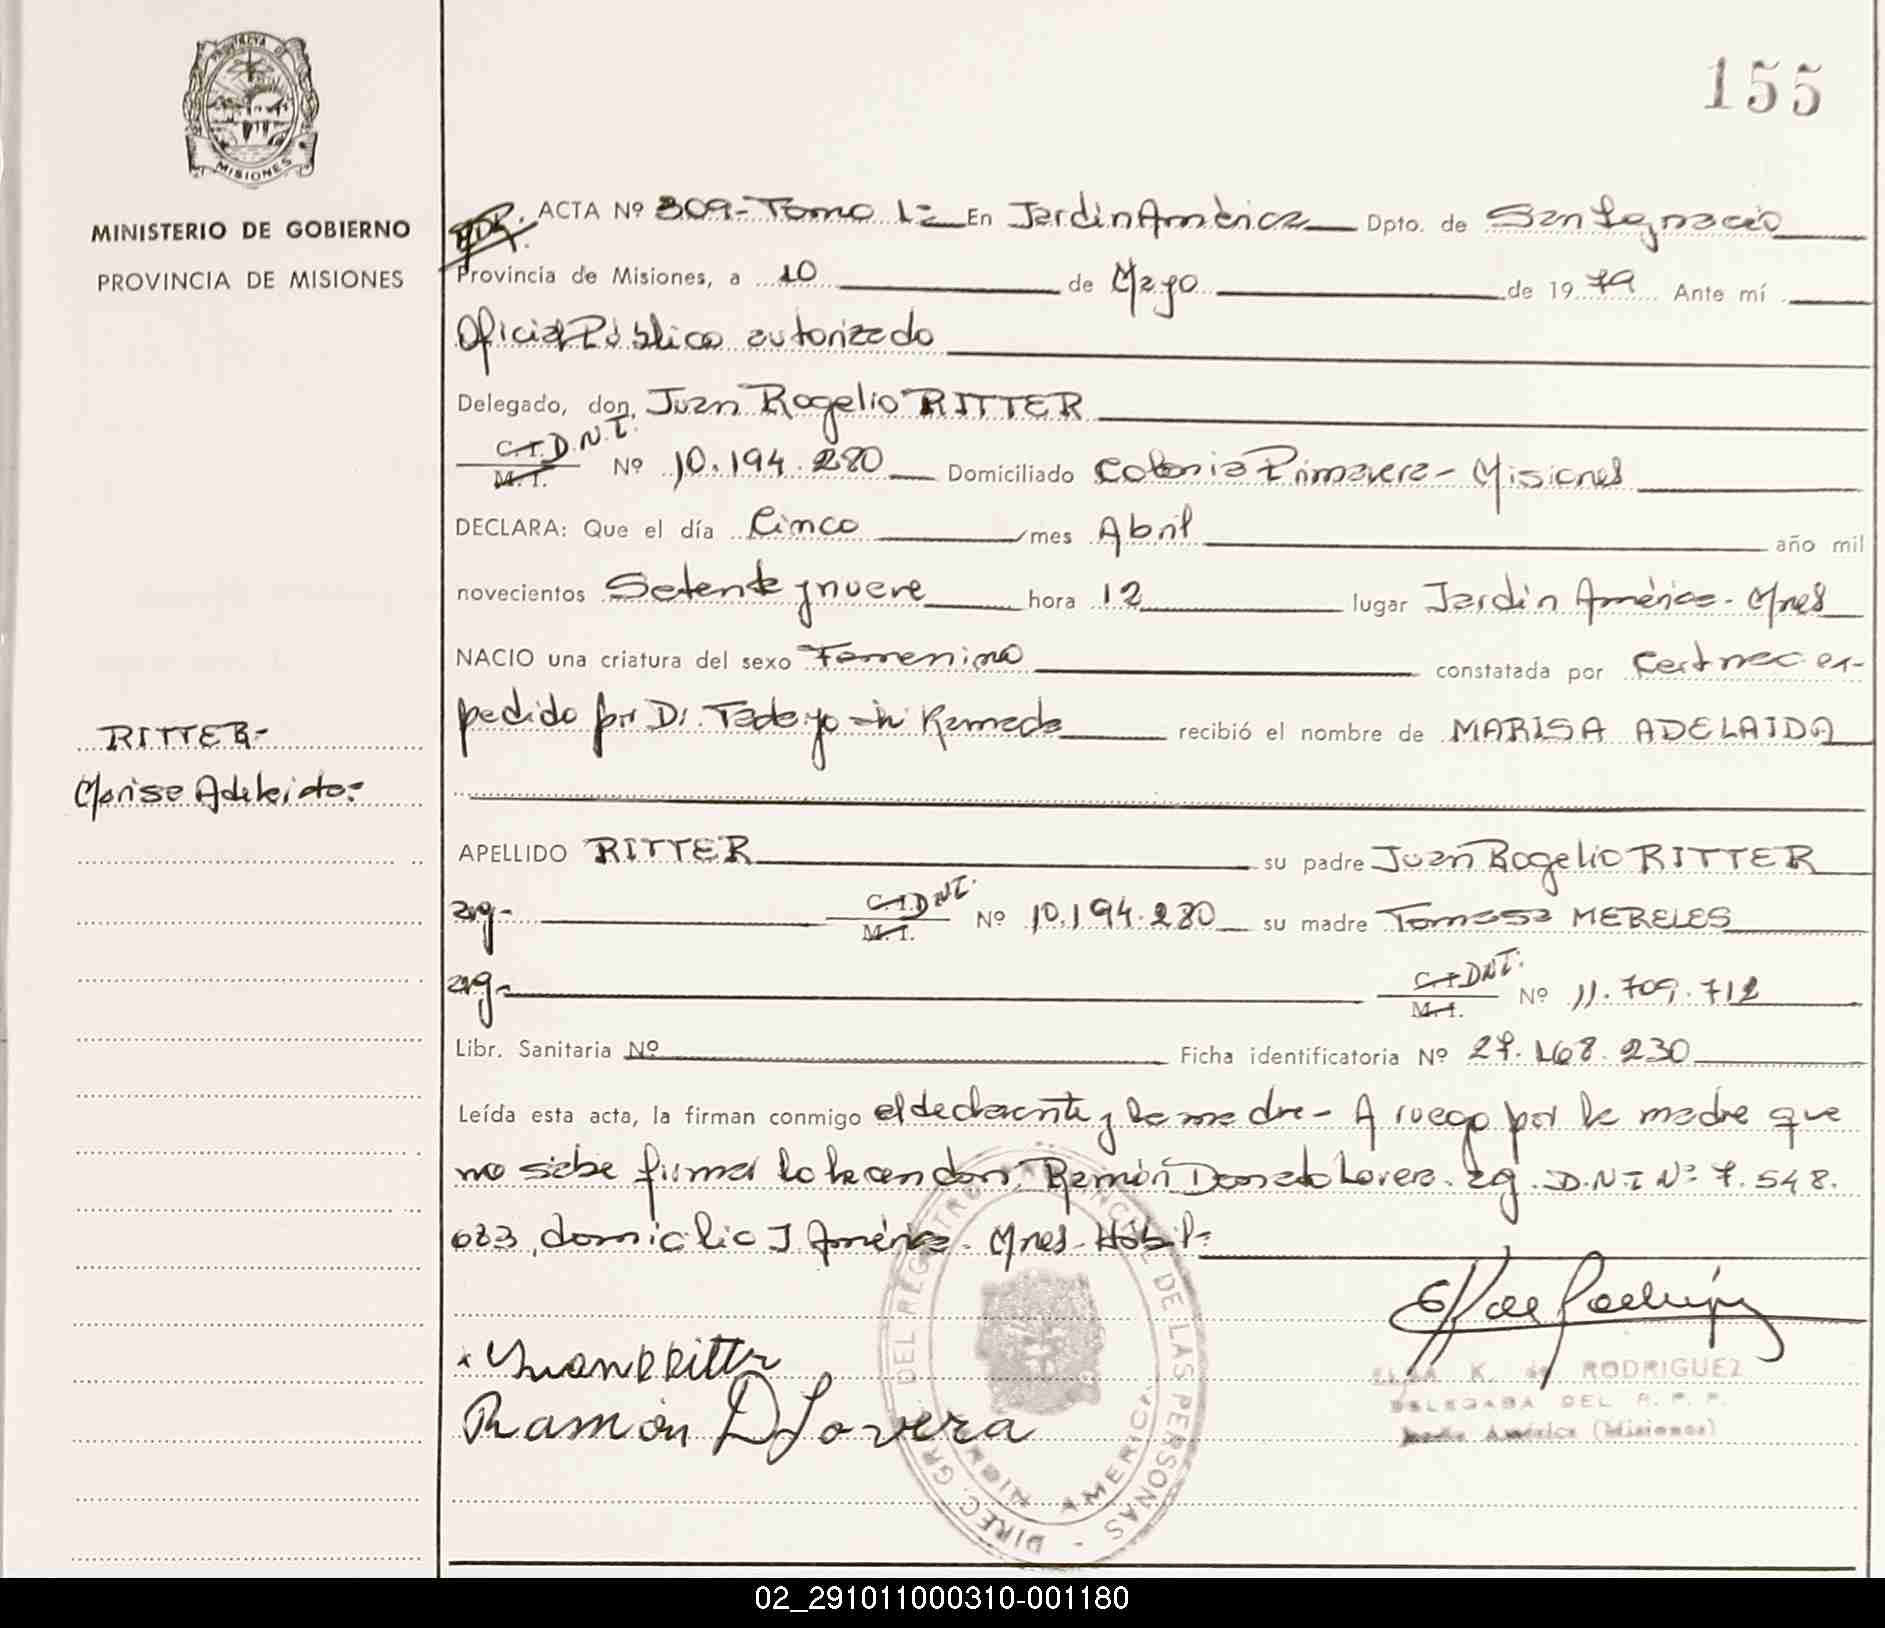 155
PROVINCIA DE
MISIONES
MINISTERIO DE GOBIERNO
PROVINCIA DE MISIONES
RITTER-
Marisa Adelaida-
ACTA Nº 309- Tomo 1º En Jardin América Dpto. de San Ignacio
Provincia de Misiones, a 10 de Mayo de 1979 Ante mí
Oficial Público autorizado
Delegado, don, Juan Rogelio RITTER
C.I. D.N.I.
M.I. Nº 10.194.280 Domiciliado Colonia Primavera - Misiones
DECLARA: Que el día Cinco mes Abril año mil
novecientos Setenta y nueve hora 12 lugar Jardin América - Mnes
NACIO una criatura del sexo Femenino constatada por Cert nac ex-
pedido por Dr. Tadayo recibió el nombre de MARISA ADELAIDA
APELLIDO RITTER su padre Juan Rogelio RITTER
arg- C.I. DNI.
M.I. Nº 10.194.280 su madre Tomasa MERELES
arg- C.I. DNI.
M.I. Nº 11.709.712
Libr. Sanitaria Nº Ficha identificatoria Nº 27.168.230
Leída esta acta, la firman conmigo el declarante y la madre - A ruego por la madre que
no sabe firmar lo hacen don: Ramón Donato Lovera. arg. D.N.I Nº 7.548.
023, domicilio J América. Mnes- Hábil-
x Juan R Ritter
Ramón D Lovera
ELSA K. de RODRIGUEZ
DELEGADA DEL R. P. P.
Jardín América (Misiones)
DIREC. GRAL. DEL REGISTRO PROVINCIAL DE LAS PERSONAS -
JARDIN AMERICA
02_291011000310-001180